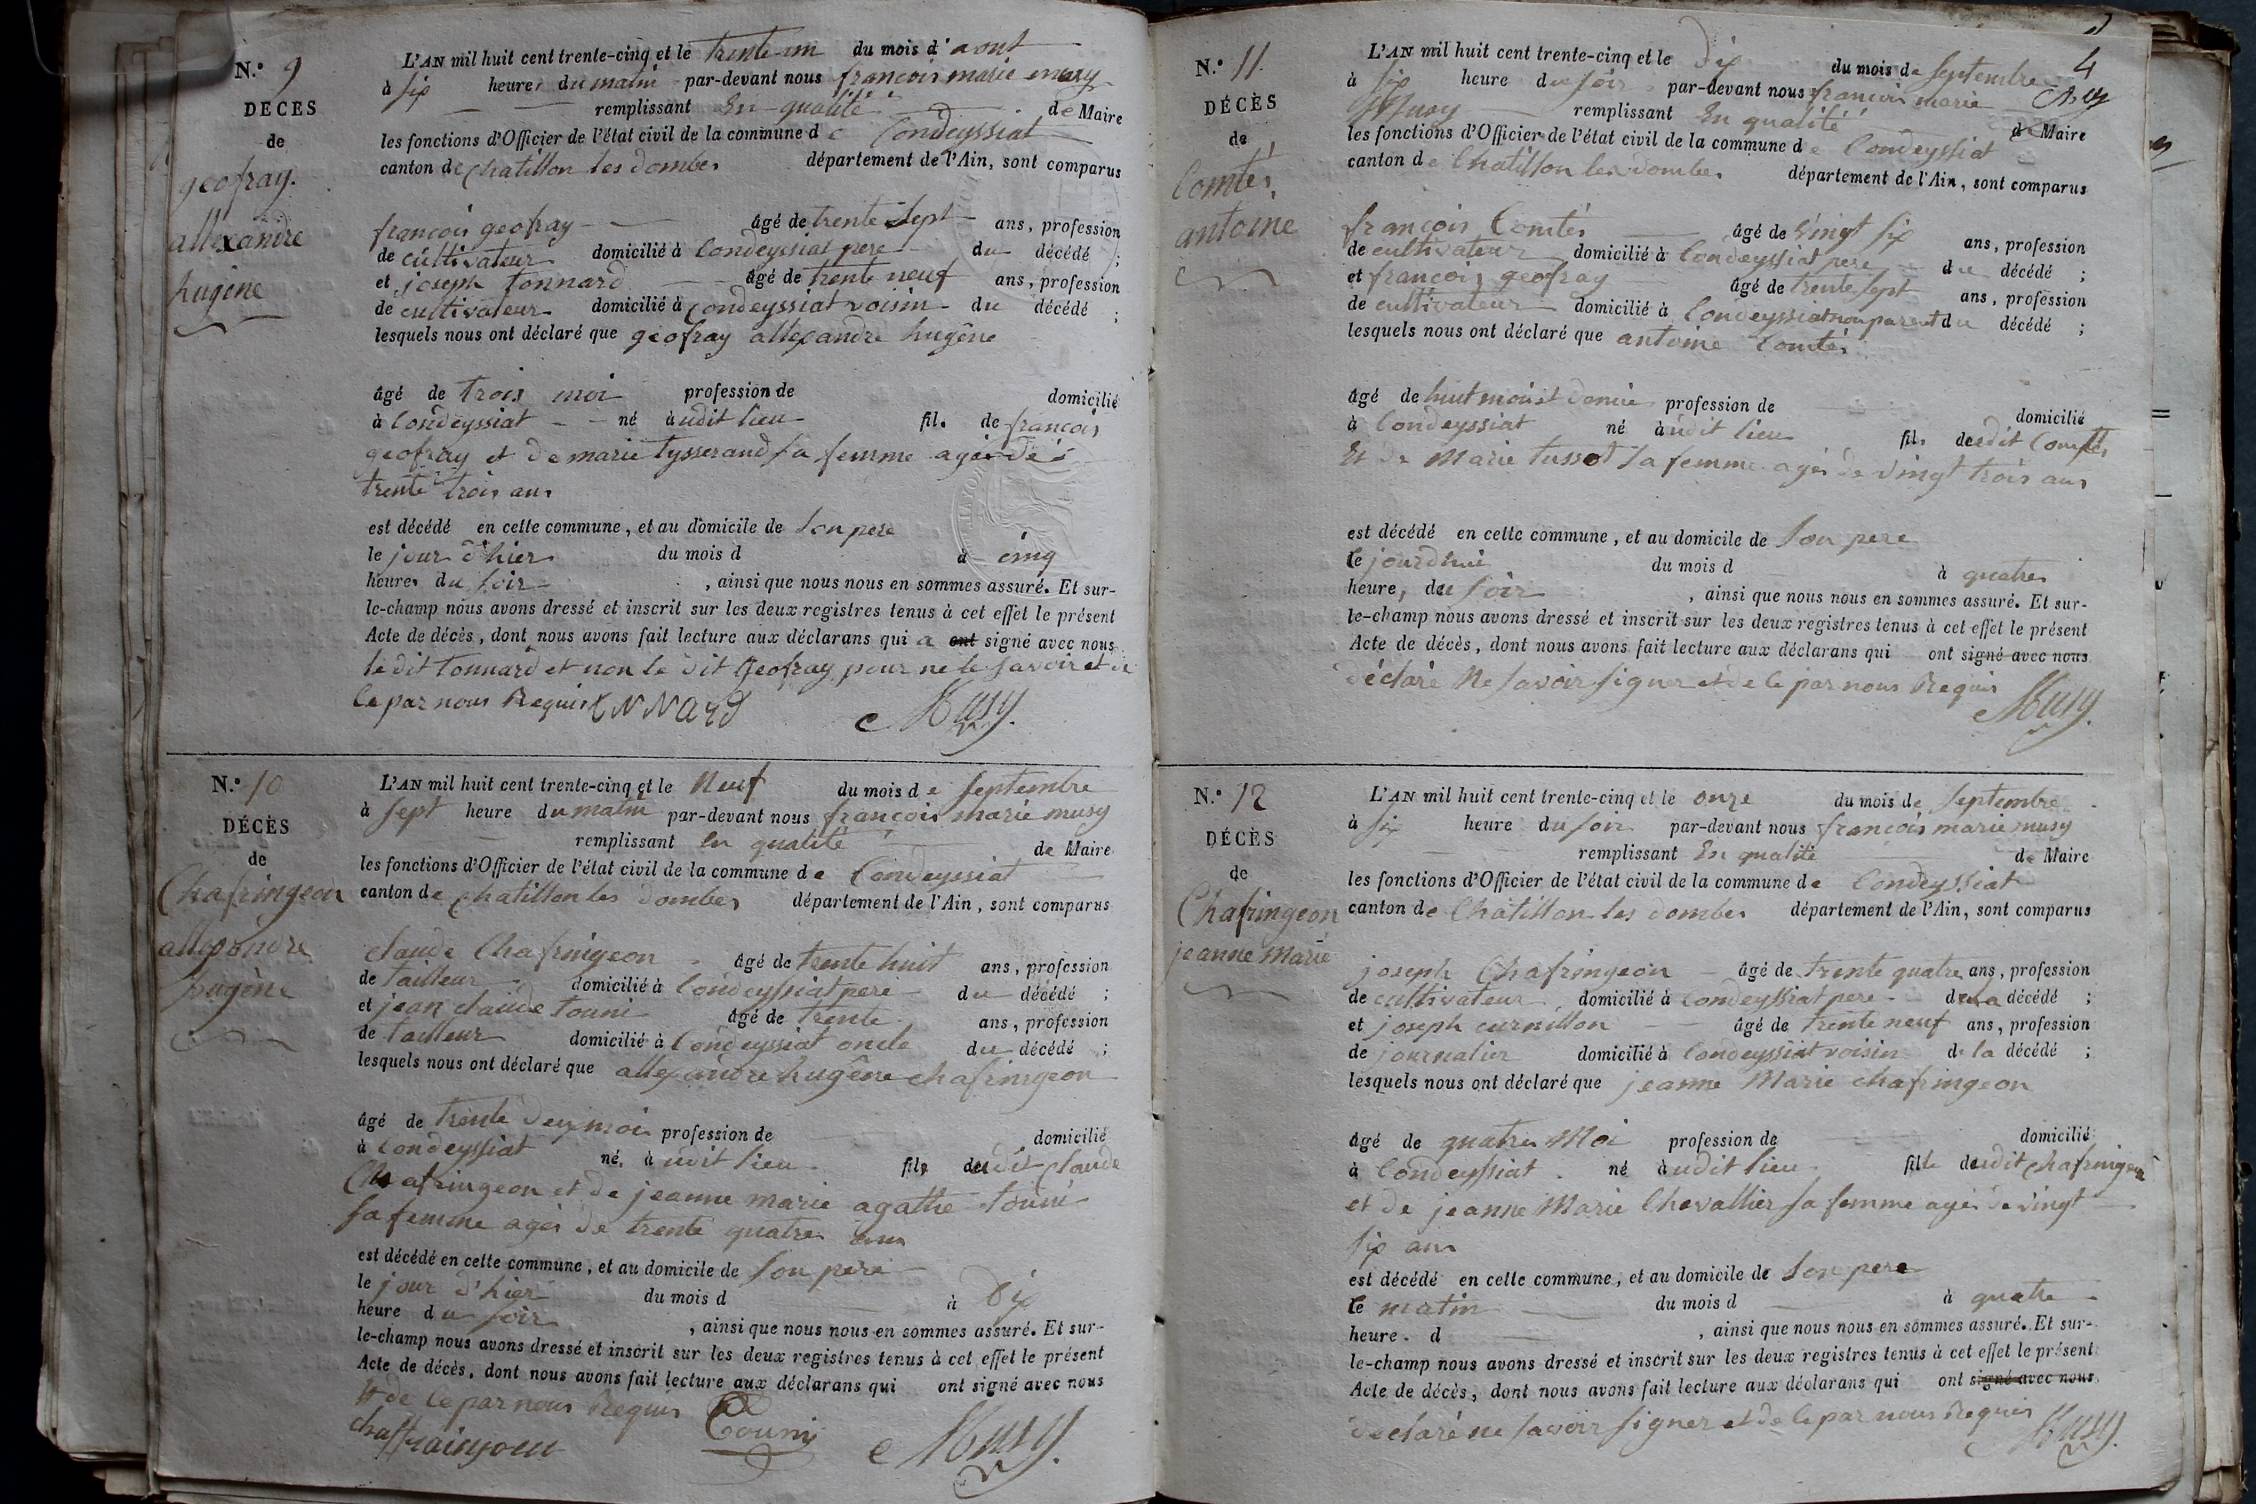 N.º 9
DECES
de
geofray.
allexandre
hugêne
L'AN mil huit cent trente-cinq et le trente-un du mois d'aout
à six heures du matin par-devant nous françois marie musy
remplissant En qualité de Maire
les fonctions d'Officier de l'état civil de la commune de Condeyssiat
canton de chatillon les dombes département de l'Ain, sont comparus
françois geofray âgé de trente sept ans, profession
de cultivateur domicilié à Condeyssiat pere du décédé ;
et joseph tonnard âgé de trente neuf ans, profession
de cultivateur domicilié à Condeyssiat voisin du décédé ;
lesquels nous ont déclaré que geofray allexandre hugêne
âgé de trois moi profession de domicilié
à Condeyssiat né audit lieu fils de françois
geofray et de marie tysserand sa femme agée de
trente trois ans
est décédé en cette commune, et au domicile de son pere
le jour d'hier du mois d à cinq
heures du soir , ainsi que nous nous en sommes assuré. Et sur-
le-champ nous avons dressé et inscrit sur les deux registres tenus à cet effet le présent
Acte de décès, dont nous avons fait lecture aux déclarans qui a ont signé avec nous
le dit tonnard et non le dit geofray pour ne le savoir et de
ce par nous Requis tNNard Musy.
N.º 10
DÉCÈS
de
Chafringeon
allexandre
hugêne
L'AN mil huit cent trente-cinq et le Neuf du mois de septembre
à sept heure du matin par-devant nous françois marie musy
remplissant en qualité de Maire
les fonctions d'Officier de l'état civil de la commune de Condeyssiat
canton de chatillon les dombes département de l'Ain, sont comparus
claude Chafringeon âgé de trente huit ans, profession
de tailleur domicilié à Condeyssiat pere du décédé ;
et jean claude touni âgé de trente ans, profession
de tailleur domicilié à Condeyssiat oncle du décédé ;
lesquels nous ont déclaré que allexandre hugêne chafringeon
âgé de trente deux moi profession de domicilié
à Condeyssiat né audit lieu fils dudit Claude
Chafringeon et de jeanne marie agathe touni
sa femme agée de trente quatre ans
est décédé en cette commune, et au domicile de son pere
le jour d'hier du mois d à dix
heure du soir , ainsi que nous nous en sommes assuré. Et sur-
le-champ nous avons dressé et inscrit sur les deux registres tenus à cet effet le présent
Acte de décès, dont nous avons fait lecture aux déclarans qui ont signé avec nous
et de ce par nous Requis Touni
chaffrainjoeu Musy.
4
N.º 11
DÉCÈS
de
Comtés
antoine
L'AN mil huit cent trente-cinq et le dix du mois de septembre
à six heure du soir par-devant nous françois marie
Musy remplissant En qualité de Maire
les fonctions d'Officier de l'état civil de la commune de Condeyssiat
canton de Chatillon les dombes département de l'Ain, sont comparus
françois Comtés âgé de vingt six ans, profession
de cultivateur domicilié à Condeyssiat pere du décédé ;
et françois geofray âgé de trente sept ans, profession
de cultivateur domicilié à Condeyssiat non parent du décédé ;
lesquels nous ont déclaré que antoine Comtés
âgé de huit mois et demie profession de domicilié
à Condeyssiat né audit lieu fils dudit Comtés
Et de Marie tussot sa femme agée de vingt trois ans
est décédé en cette commune, et au domicile de son pere
le jourdhui du mois d à quatre
heure, du soir , ainsi que nous nous en sommes assuré. Et sur-
le-champ nous avons dressé et inscrit sur les deux registres tenus à cet effet le présent
Acte de décès, dont nous avons fait lecture aux déclarans qui ont signé avec nous
déclaré Ne savoir signer et de ce par nous Requis Musy.
N.º 12
DÉCÈS
de
Chafringeon
jeanne Marie
L'AN mil huit cent trente-cinq et le onze du mois de septembre
à six heure du soir par-devant nous françois marie musy
remplissant En qualité de Maire
les fonctions d'Officier de l'état civil de la commune de Condeyssiat
canton de Chatillon les dombes département de l'Ain, sont comparus
joseph Chafringeon âgé de trente quatre ans, profession
de cultivateur domicilié à Condeyssiat pere de la décédé ;
et joseph curnillon âgé de trente neuf ans, profession
de journalier domicilié à Condeyssiat voisin de la décédé ;
lesquels nous ont déclaré que jeanne Marie chafringeon
âgé de quatre Moi profession de domicilié
à Condeyssiat né audit lieu fille dudit Chafringeon
et de jeanne Marie Chevallier sa femme agée de vingt
six ans
est décédé en cette commune, et au domicile de son pere
le matin du mois d à quatre
heure d , ainsi que nous nous en sommes assuré. Et sur-
le-champ nous avons dressé et inscrit sur les deux registres tenus à cet effet le présent
Acte de décès, dont nous avons fait lecture aux déclarans qui ont signé avec nous
declaré ne savoir signer et de ce par nous Requis Musy.